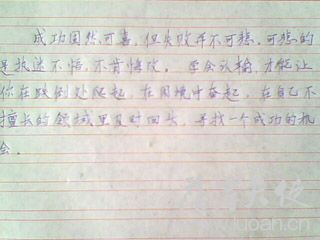 成功固然可喜，但失败并不可悲，可悲的
是执迷不悟，不肯悔改。学会认输，才能让
你在跌倒处爬起，在困境中奋起，在自己不
擅长的领域里及时回头，寻找一个成功的机
会。
luoah.cn